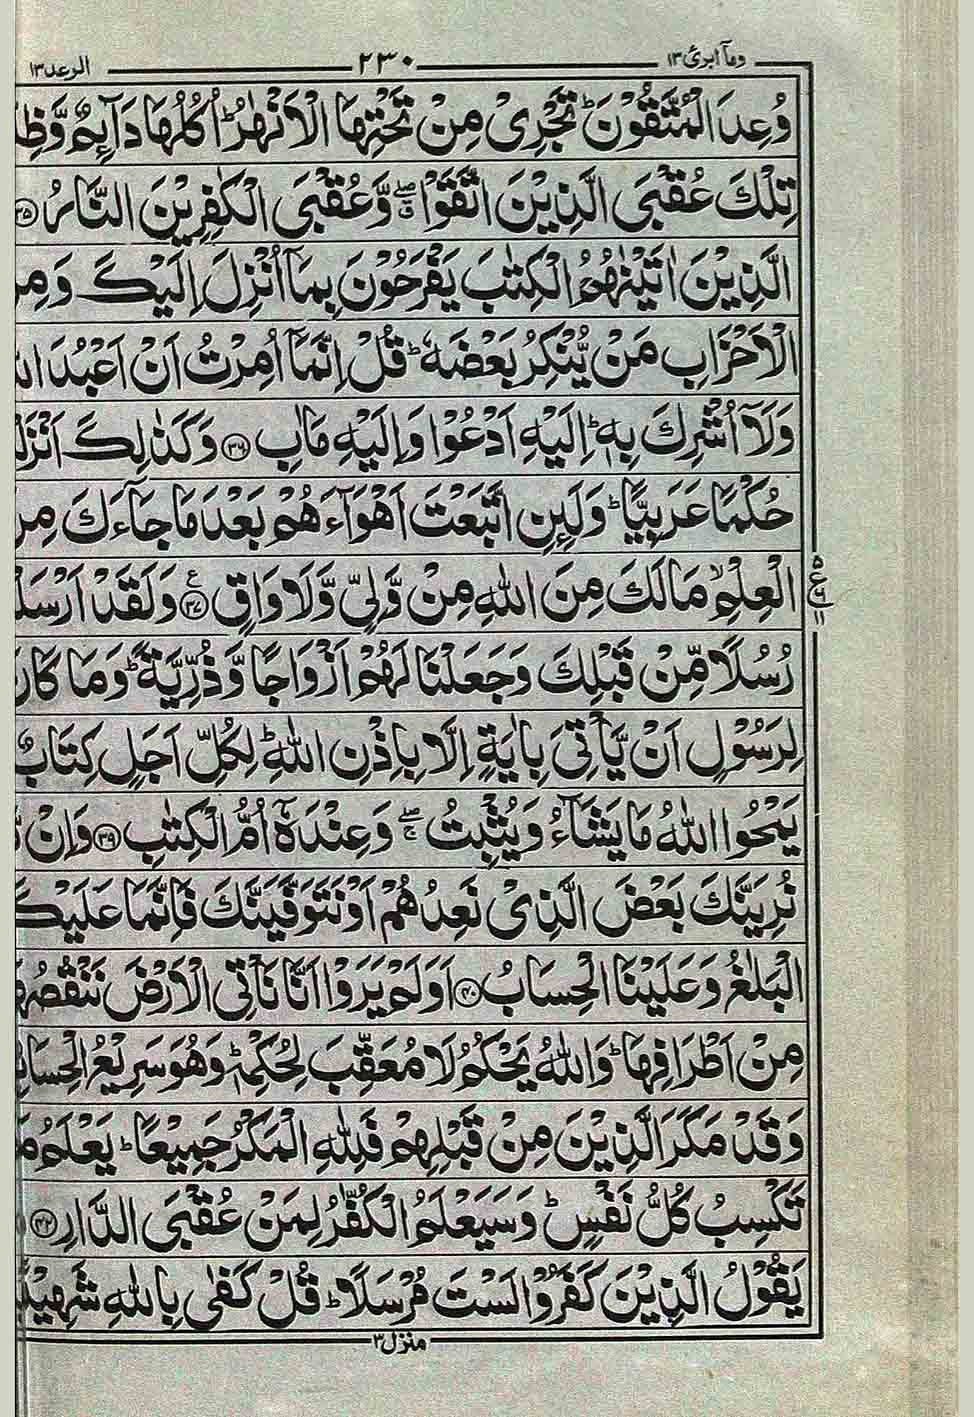 ومآ ابرئ ١٣ ٢٣٠ الرعد ١٣
وُعِدَ الْمُتَّقُوْنَ ؕ تَجْرِیْ مِنْ تَحْتِهَا الْاَنْهٰرُ ؕ اُكُلُهَا دَآىِٕمٌ وَّظِ
تِلْكَ عُقْبَى الَّذِیْنَ اتَّقَوْا ۖۗ وَّعُقْبَى الْكٰفِرِیْنَ النَّارُ ﴿۳۵﴾
الَّذِیْنَ اٰتَیْنٰهُمُ الْكِتٰبَ یَفْرَحُوْنَ بِمَاۤ اُنْزِلَ اِلَیْكَ وَمِنَ
الْاَحْزَابِ مَنْ یُّنْكِرُ بَعْضَهٗ ؕ قُلْ اِنَّمَاۤ اُمِرْتُ اَنْ اَعْبُدَ ال
وَلَاۤ اُشْرِكَ بِهٖ ؕ اِلَیْهِ اَدْعُوْا وَاِلَیْهِ مَاٰبِ ﴿۳۶﴾ وَكَذٰلِكَ اَنْزَلْ
حُكْمًا عَرَبِیًّا ؕ وَلَىِٕنِ اتَّبَعْتَ اَهْوَآءَهُمْ بَعْدَ مَا جَآءَكَ مِنَ
الْعِلْمِ ۙ مَا لَكَ مِنَ اللّٰهِ مِنْ وَّلِیٍّ وَّلَا وَاقٍ ﴿۳۷﴾ ع وَلَقَدْ اَرْسَلْ
٥ ع ٦ ١١
رُسُلًا مِّنْ قَبْلِكَ وَجَعَلْنَا لَهُمْ اَزْوَاجًا وَّذُرِّیَّةً ؕ وَمَا كَانَ
لِرَسُوْلٍ اَنْ یَّاْتِیَ بِاٰیَةٍ اِلَّا بِاِذْنِ اللّٰهِ ؕ لِكُلِّ اَجَلٍ كِتَابٌ
یَمْحُوا اللّٰهُ مَا یَشَآءُ وَیُثْبِتُ ۖۚ وَعِنْدَهٗۤ اُمُّ الْكِتٰبِ ﴿۳۹﴾ وَاِنْ
نُرِیَنَّكَ بَعْضَ الَّذِیْ نَعِدُهُمْ اَوْ نَتَوَفَّیَنَّكَ فَاِنَّمَا عَلَیْكَ
الْبَلٰغُ وَعَلَیْنَا الْحِسَابُ ﴿۴۰﴾ اَوَلَمْ یَرَوْا اَنَّا نَاْتِی الْاَرْضَ نَنْقُصُهَا
مِنْ اَطْرَافِهَا ؕ وَاللّٰهُ یَحْكُمُ لَا مُعَقِّبَ لِحُكْمِهٖ ؕ وَهُوَ سَرِیْعُ الْحِسَابِ
وَقَدْ مَكَرَ الَّذِیْنَ مِنْ قَبْلِهِمْ فَلِلّٰهِ الْمَكْرُ جَمِیْعًا ؕ یَعْلَمُ مَا
تَكْسِبُ كُلُّ نَفْسٍ ؕ وَسَیَعْلَمُ الْكُفّٰرُ لِمَنْ عُقْبَى الدَّارِ ﴿۴۲﴾
یَقُوْلُ الَّذِیْنَ كَفَرُوْا لَسْتَ مُرْسَلًا ؕ قُلْ كَفٰى بِاللّٰهِ شَهِیْدًۢا
منزل ٣